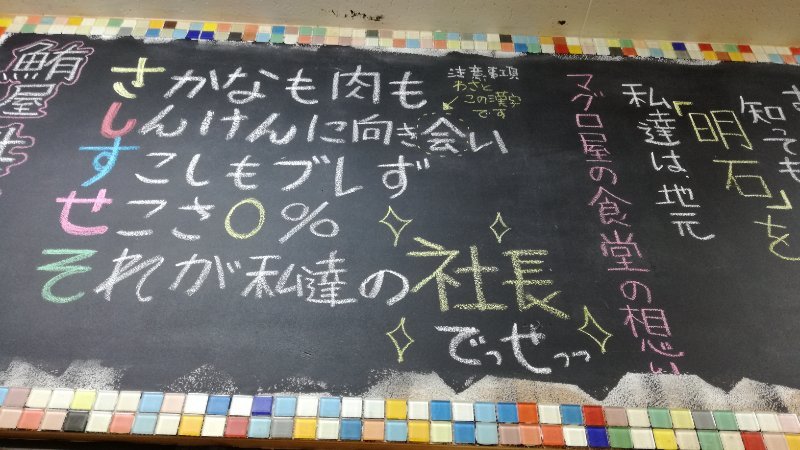 さかなも肉も
しんけんに向き会い
すこしもブレず
せこさ0%
それが私達の社長
でっせっっ
注意事項
わざと
この漢字
です
マグロ屋の食堂の想い
私達は、地元
「明石」を
知っても
鮪屋